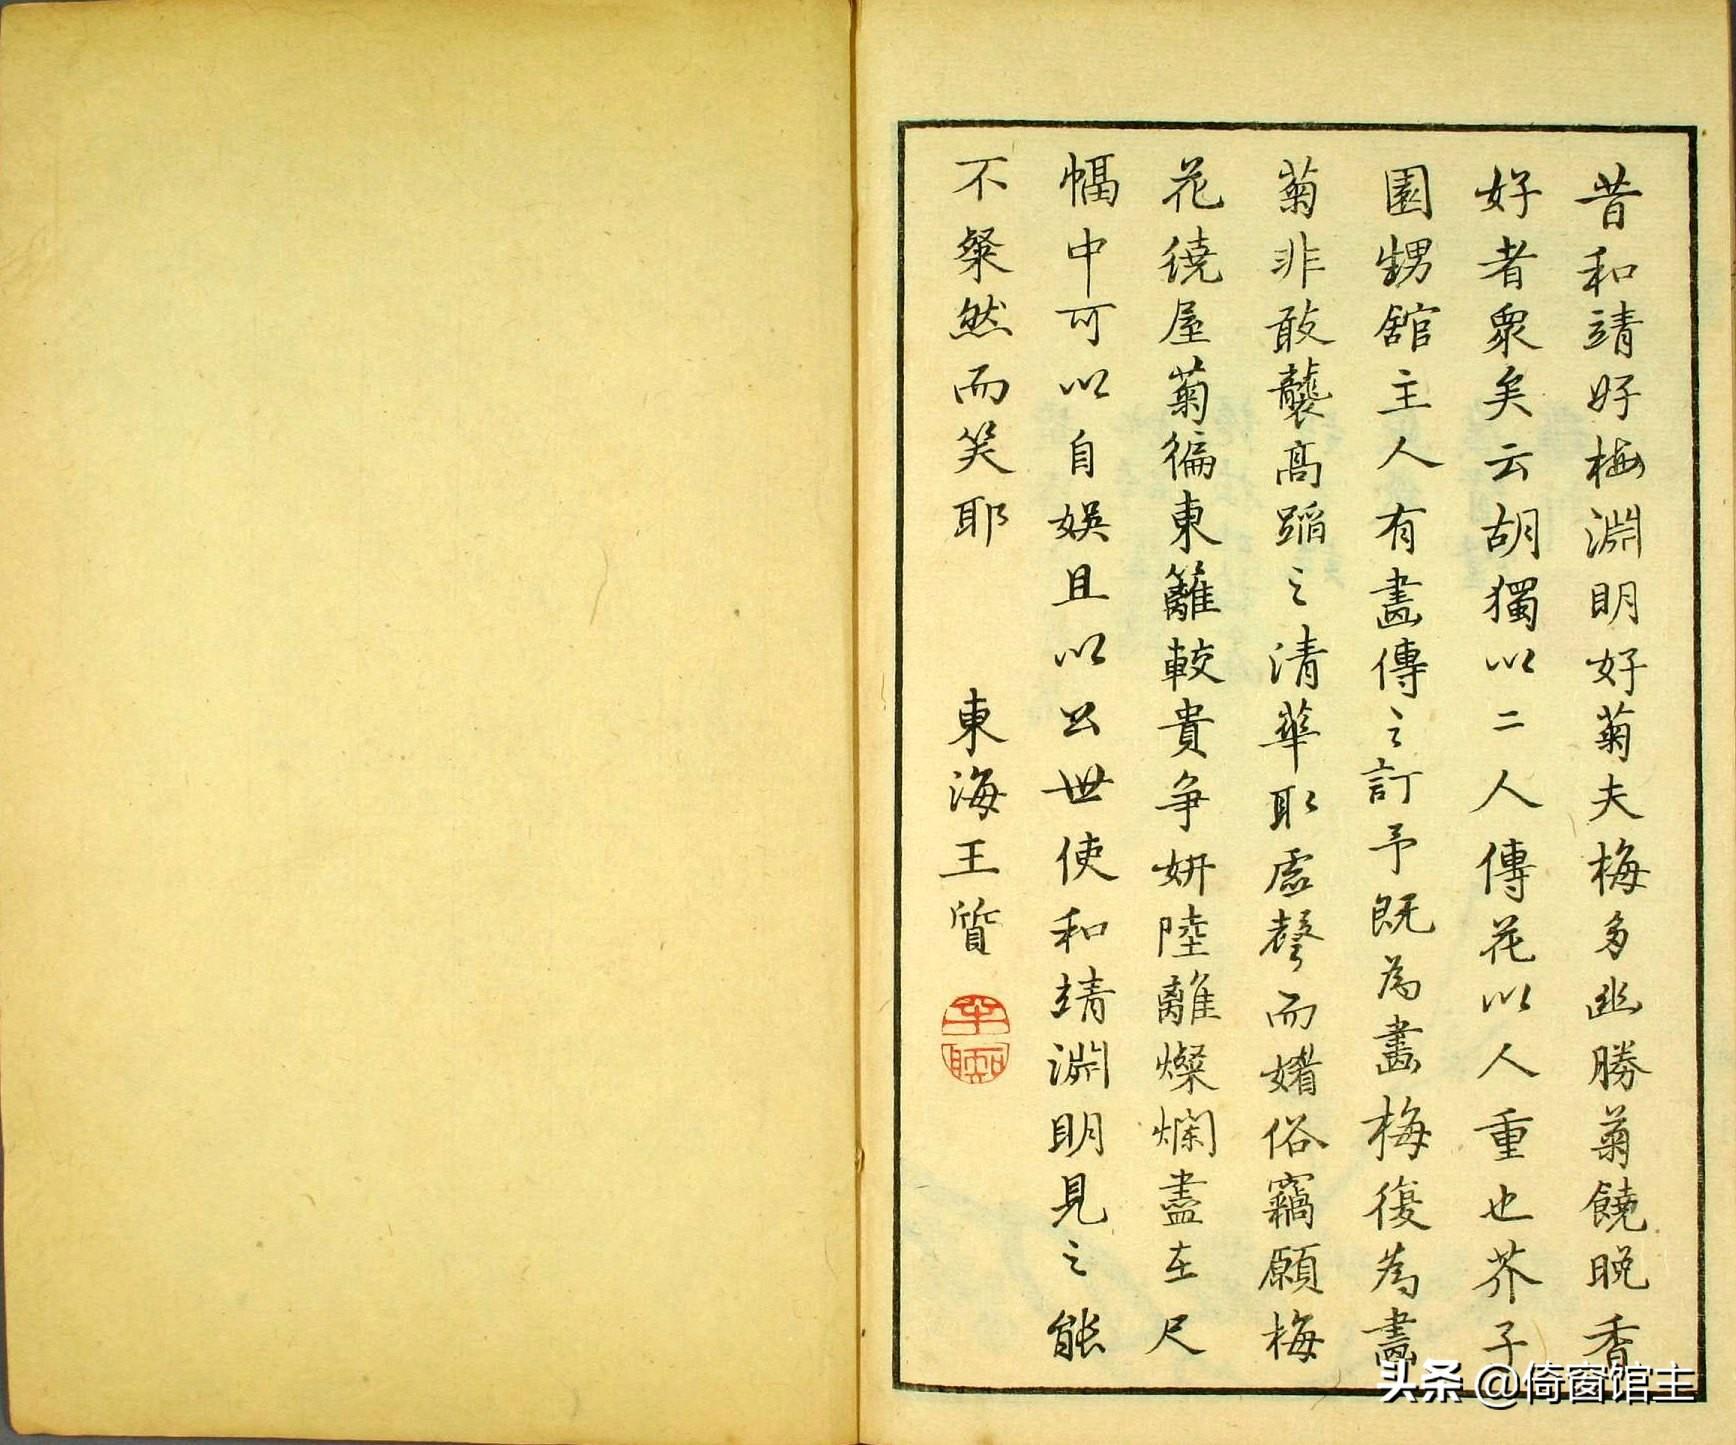 昔和靖好梅淵明好菊夫梅多幽勝菊饒晚香
好者衆矣云胡獨以二人傳花以人重也芥子
園甥舘主人有畫傳之訂予既為畫梅復為畫
菊非敢襲高蹈之清華取虛聲而媚俗竊願梅
花繞屋菊徧東籬較貴争妍陸離燦爛盡在尺
幅中可以自娛且以公世使和靖淵明見之能
不粲然而笑耶
東海王質
头条 @倚窗馆主